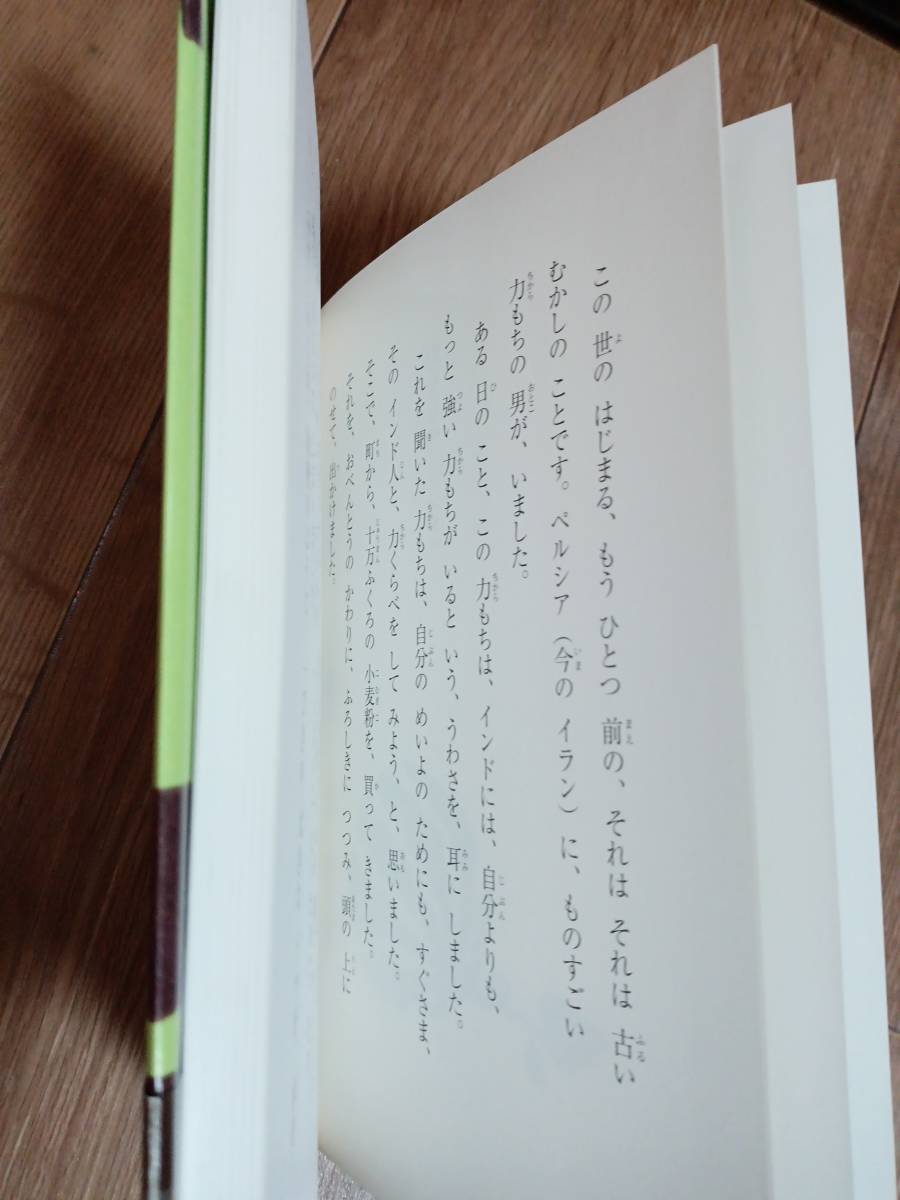 この 世の はじまる、もう ひとつ 前の、それは それは 古い
むかしの ことです。ペルシア（今の イラン）に、ものすごい
力もちの 男が、いました。
ある 日の こと、この 力もちは、インドには、自分よりも、
もっと 強い 力もちが いると いう、うわさを、耳に しました。
これを 聞いた 力もちは、自分の めいよの ためにも、すぐさま、
その インド人と、力くらべを して みよう、と、思いました。
そこで、町から、十万ふくろの 小麦粉を、買って きました。
それを、おべんとうの かわりに、ふろしきに つつみ、頭の 上に
のせて、出かけました。